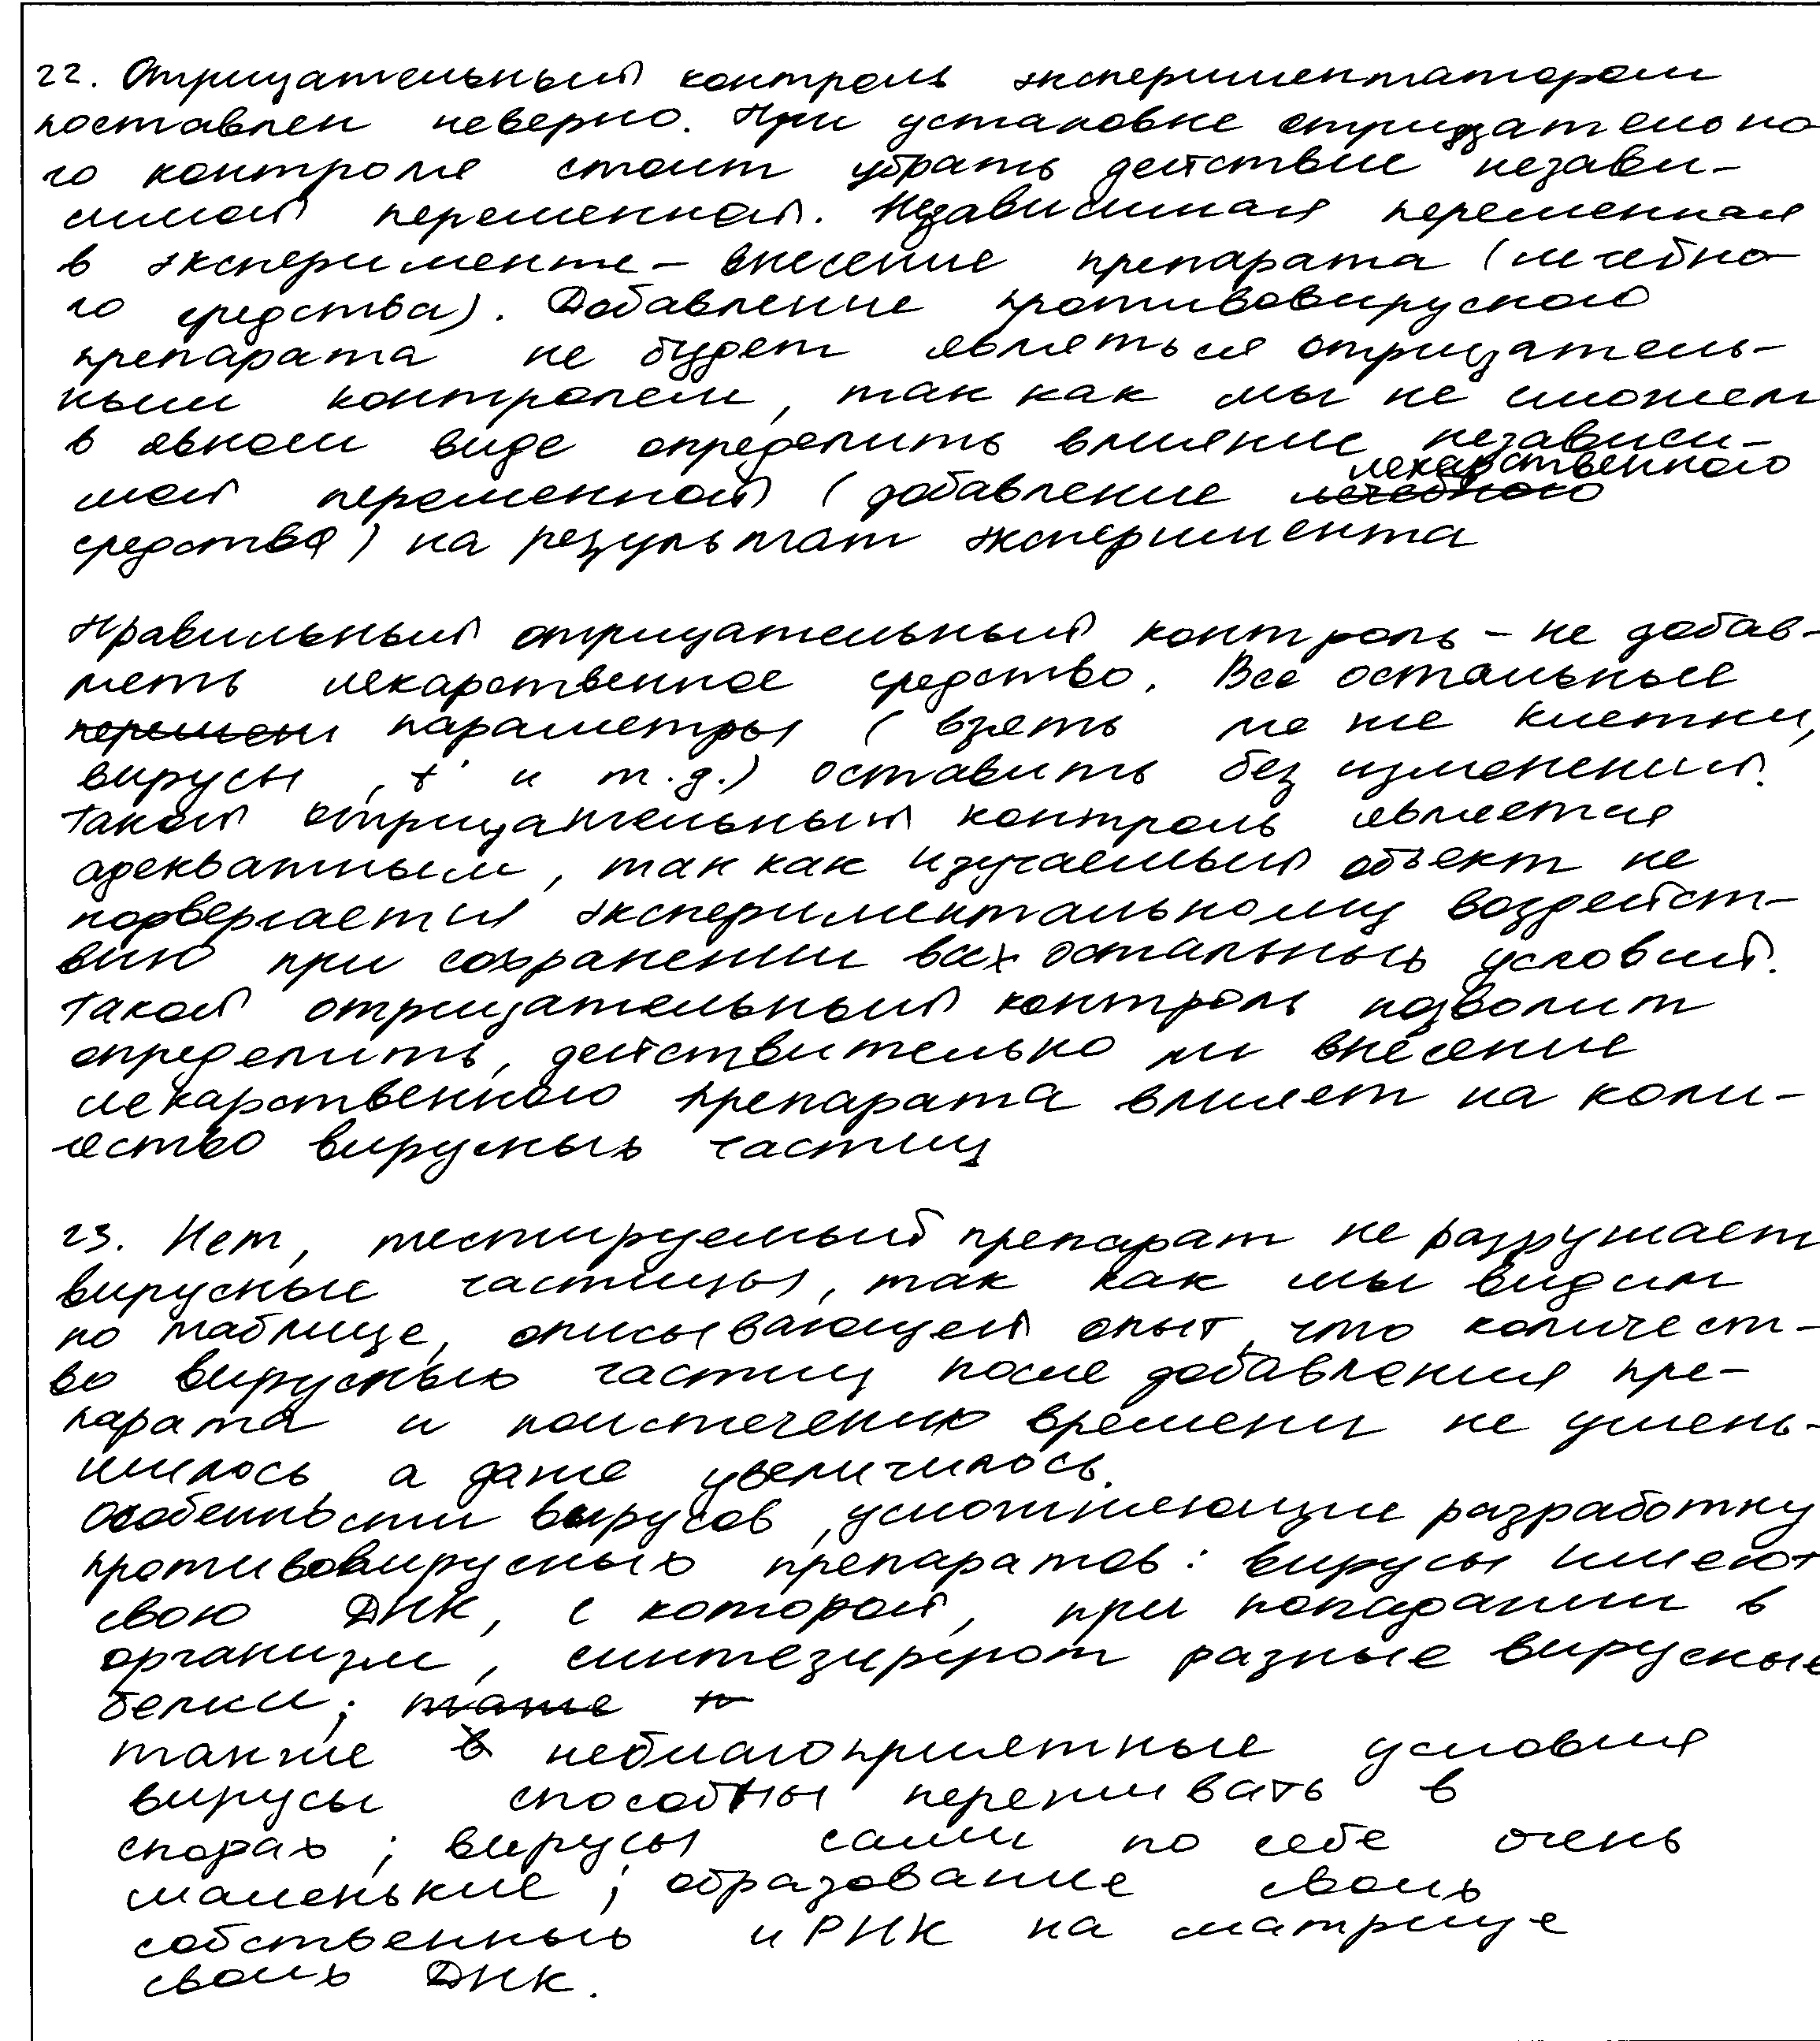 22. Отрицательный контроль экспериментатором
поставлен неверно. При установке отрицательно
го контроля стоит убрать действие незави-
симой переменной. Независимая переменная
в эксперименте - внесение препарата (лечебно
го средства). Добавление противовирусного
препарата не будет являться отрицатель-
ным контролем, так как мы не сможем
в явном виде определить влияние независи-
мой переменной (добавление ~~лечебного~~ лекарственного
средства) на результат эксперимента
Правильный отрицательный контроль - не добав-
лять лекарственное средство. Все остальные
~~перемен~~ параметры (взять те же клетки,
вирусы, t° и т.д.) оставить без изменений.
Такой отрицательный контроль является
адекватным, так как изучаемый объект не
подвергается экспериментальному воздейст-
вию при сохранении всех остальных условий.
Такой отрицательный контроль позволит
определить, действительно ли внесение
лекарственного препарата влияет на коли-
чество вирусных частиц
23. Нет, тестируемый препарат не разрушает
вирусные частицы, так как мы видим
по таблице, описывающей опыт, что количест-
во вирусных частиц после добавления пре-
парата и поистечению времени не умень-
шилось, а даже увеличилось.
Особенности вирусов, усложняющие разработку
противовирусных препаратов: вирусы имеют
свою ДНК, с которой, при попадании в
организм, синтезируют разные вирусные
белки; ~~также~~ ~~п~~
также ~~в~~ неблагоприятные условия
вирусы способны переживать в
спорах; вирусы сами по себе очень
маленькие; образование своих
собственных иРНК на матрице
своих ДНК.